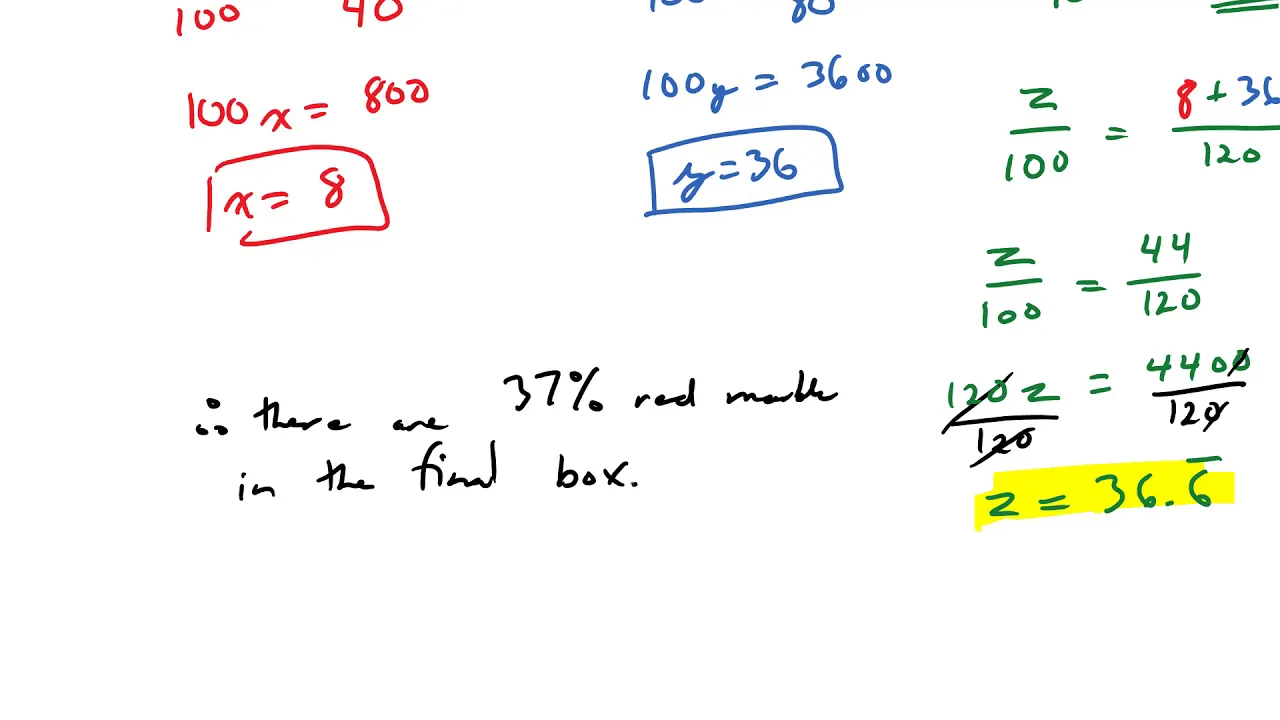 100 40
100x = 800
x = 8
80
100y = 3600
y = 36
z/100 = 8 + 36/120
z/100 = 44/120
120z/120 = 4400/120
z = 36.6̅
∴ there are 37% red marble
in the final box.